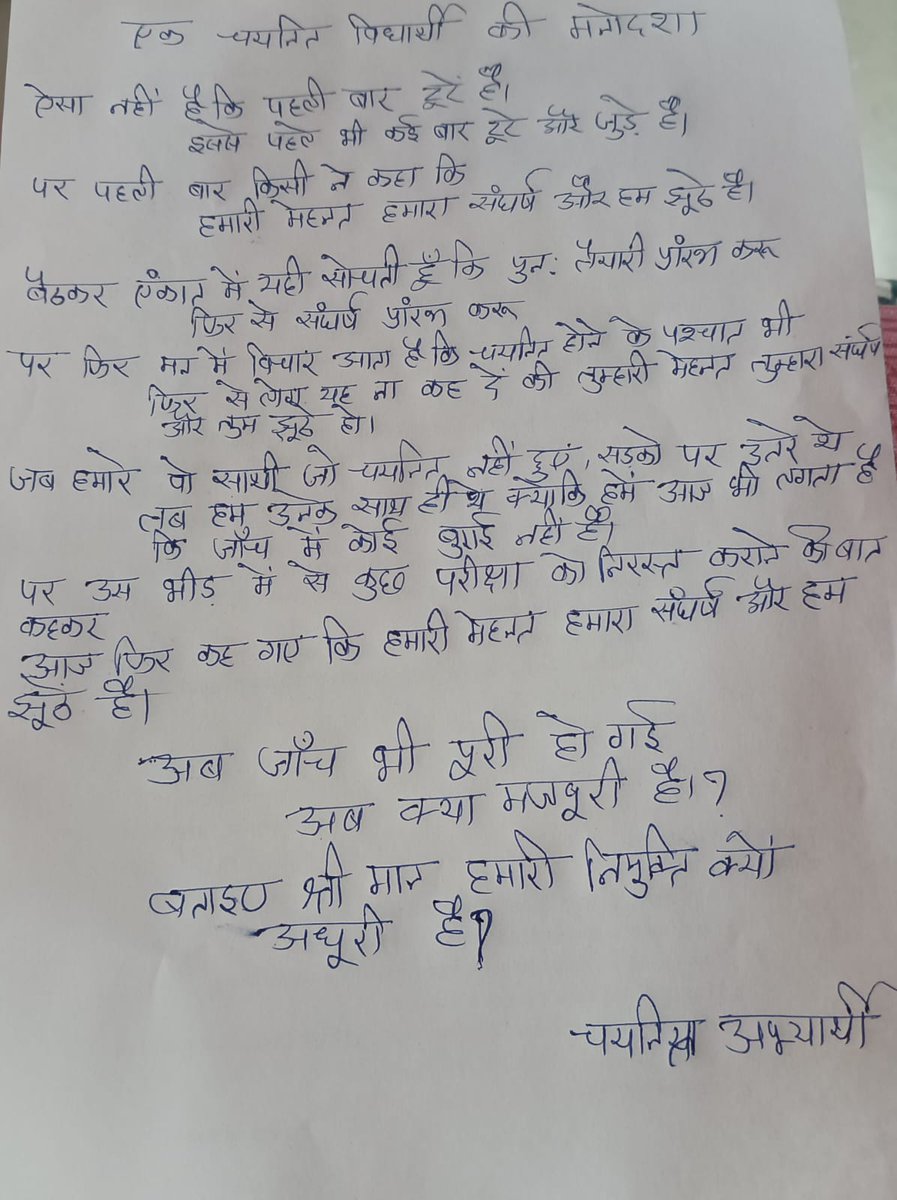 एक चयनित विधार्थी की मनोदशा
ऐसा नहीं है कि पहली बार टूटें है।
इससे पहले भी कई बार टूटे और जुड़े है।
पर पहली बार किसी ने कहा कि
हमारी मेहनत हमारा संघर्ष और हम झूठे है।
बैठकर एंकात में यही सोचती हूँ कि पुनः तैयारी प्रांरभ करू
फिर से संघर्ष प्रांरभ करू
पर फिर मन में विचार आता है कि चयनित होने के पश्चात भी
फिर से लोग यह ना कह दें की तुम्हारी मेहनत तुम्हारा संघर्ष
और तुम झूठे हो।
जब हमारे वो साथी जो चयनित नहीं हुएं, सड़को पर उतरे थे
तब हम उनके साथ ही थे क्योकि हमें आज भी लगता है
कि जाँच में कोई बुराई नहीं है।
पर उस भीड़ में से कुछ परीक्षा को निरस्त कराने की बात
कहकर
आज फिर कह गए कि हमारी मेहनत हमारा संघर्ष और हम
झूठे है।
अब जाँच भी पूरी हो गई
अब क्या मजबूरी है।?
बताइए श्री मान हमारी नियुक्ति क्यों
अधूरी है?
अभ्यार्थी